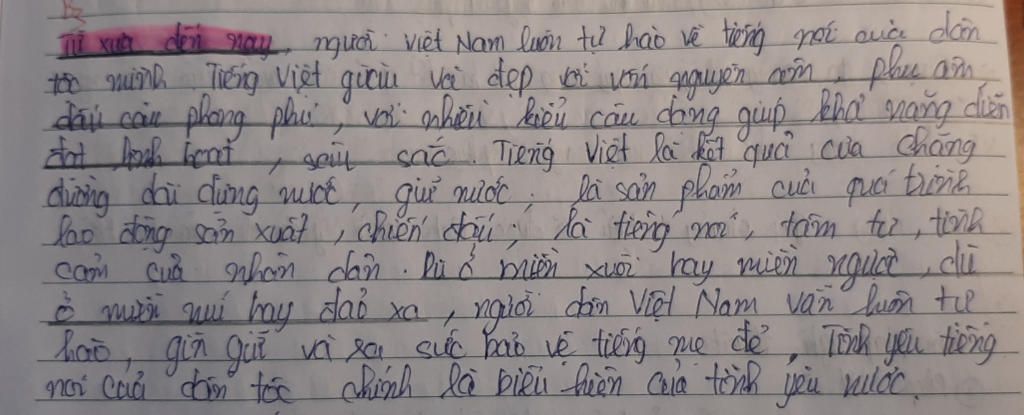 Từ xưa đến nay, người Việt Nam luôn tự hào về tiếng nói của dân
tộc mình. Tiếng Việt giàu và đẹp với vốn nguyên âm, phụ âm
dấu câu phong phú, với nhiều kiểu câu dang giúp khả năng diễn
đạt linh hoạt, sâu sắc. Tiếng Việt là kết quả của chặng
đường dài dựng nước, giữ nước, là sản phẩm của quá trình
lao động sản xuất, chiến đấu; là tiếng nói, tâm tư, tình
cảm của nhân dân. Dù ở miền xuôi hay miền ngược, dù
ở miền núi hay đảo xa, người dân Việt Nam vẫn luôn tự
hào, gìn giữ và ra sức bảo vệ tiếng mẹ đẻ. Tình yêu tiếng
nói của dân tộc chính là biểu hiện của tình yêu nước.